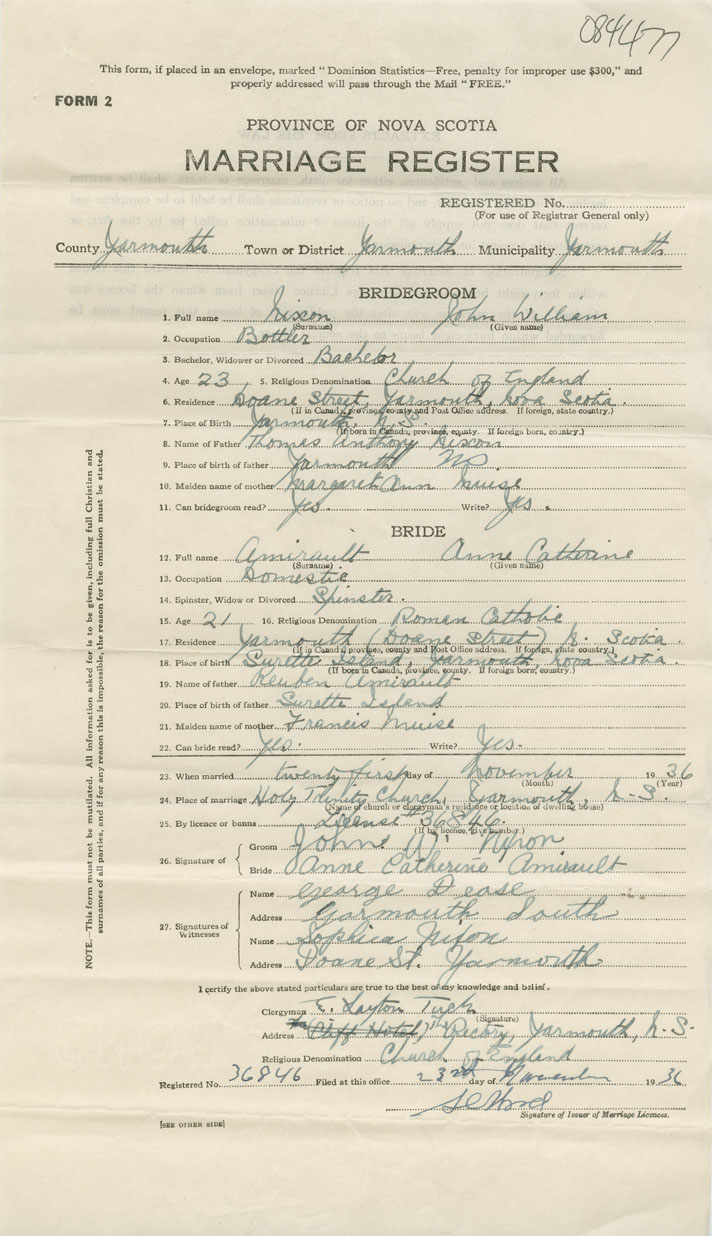 084477
This form, if placed in an envelope, marked "Dominion Statistics—Free, penalty for improper use $300," and
properly addressed will pass through the Mail "FREE."
FORM 2
PROVINCE OF NOVA SCOTIA
MARRIAGE REGISTER
REGISTERED No.
(For use of Registrar General only)
County Yarmouth Town or District Yarmouth Municipality Yarmouth
BRIDEGROOM
1. Full name Nixon John William
(Surname) (Given name)
2. Occupation Bottler
3. Bachelor, Widower or Divorced Bachelor
4. Age 23 5. Religious Denomination Church of England
6. Residence Doane Street, Yarmouth, Nova Scotia.
(If in Canada, province, county and Post Office address. If foreign, state country.)
7. Place of Birth Yarmouth, N.S.
(If born in Canada, province, county. If foreign born, country.)
8. Name of Father Thomas Anthony Nixon
9. Place of birth of father Yarmouth NS
10. Maiden name of mother Margaret Ann Muise
11. Can bridegroom read? Yes. Write? Yes.
BRIDE
12. Full name Amirault Anne Catherine
(Surname) (Given name)
13. Occupation Domestic
14. Spinster, Widow or Divorced Spinster.
15. Age 21 16. Religious Denomination Roman Catholic
17. Residence Yarmouth (Doane Street) N. Scotia.
(If in Canada, province, county and Post Office address. If foreign, state country.)
18. Place of birth Surette Island, Yarmouth, Nova Scotia.
(If born in Canada, province, county. If foreign born, country.)
19. Name of father Reuben Amirault
20. Place of birth of father Surette Island
21. Maiden name of mother Francis Muise
22. Can bride read? Yes. Write? Yes.
23. When married twenty first day of November 1936
(Month) (Year)
24. Place of marriage Holy Trinity Church, Yarmouth, N.S.
(Name of church or clergyman's residence or location of dwelling house)
25. By licence or banns License # 36846.
(If by licence, give number.)
26. Signature of Groom John W. Nixon
Bride Anne Catherine Amirault
27. Signatures of Witnesses
Name George Dease
Address Yarmouth South
Name Sophia Nixon
Address Doane St. Yarmouth
I certify the above stated particulars are true to the best of my knowledge and belief.
Clergyman E. Layton Tuck
(Signature)
Address (Cliff Hotel) The Rectory, Yarmouth, N.S.
Religious Denomination Church of England
Registered No. 36846 Filed at this office 23rd day of November 1936
Signature of Issuer of Marriage Licences.
[SEE OTHER SIDE]
NOTE.—This form must not be mutilated. All information asked for is to be given, including full Christian and
surnames of all parties, and if for any reason this is impossible, the reason for the omission must be stated.